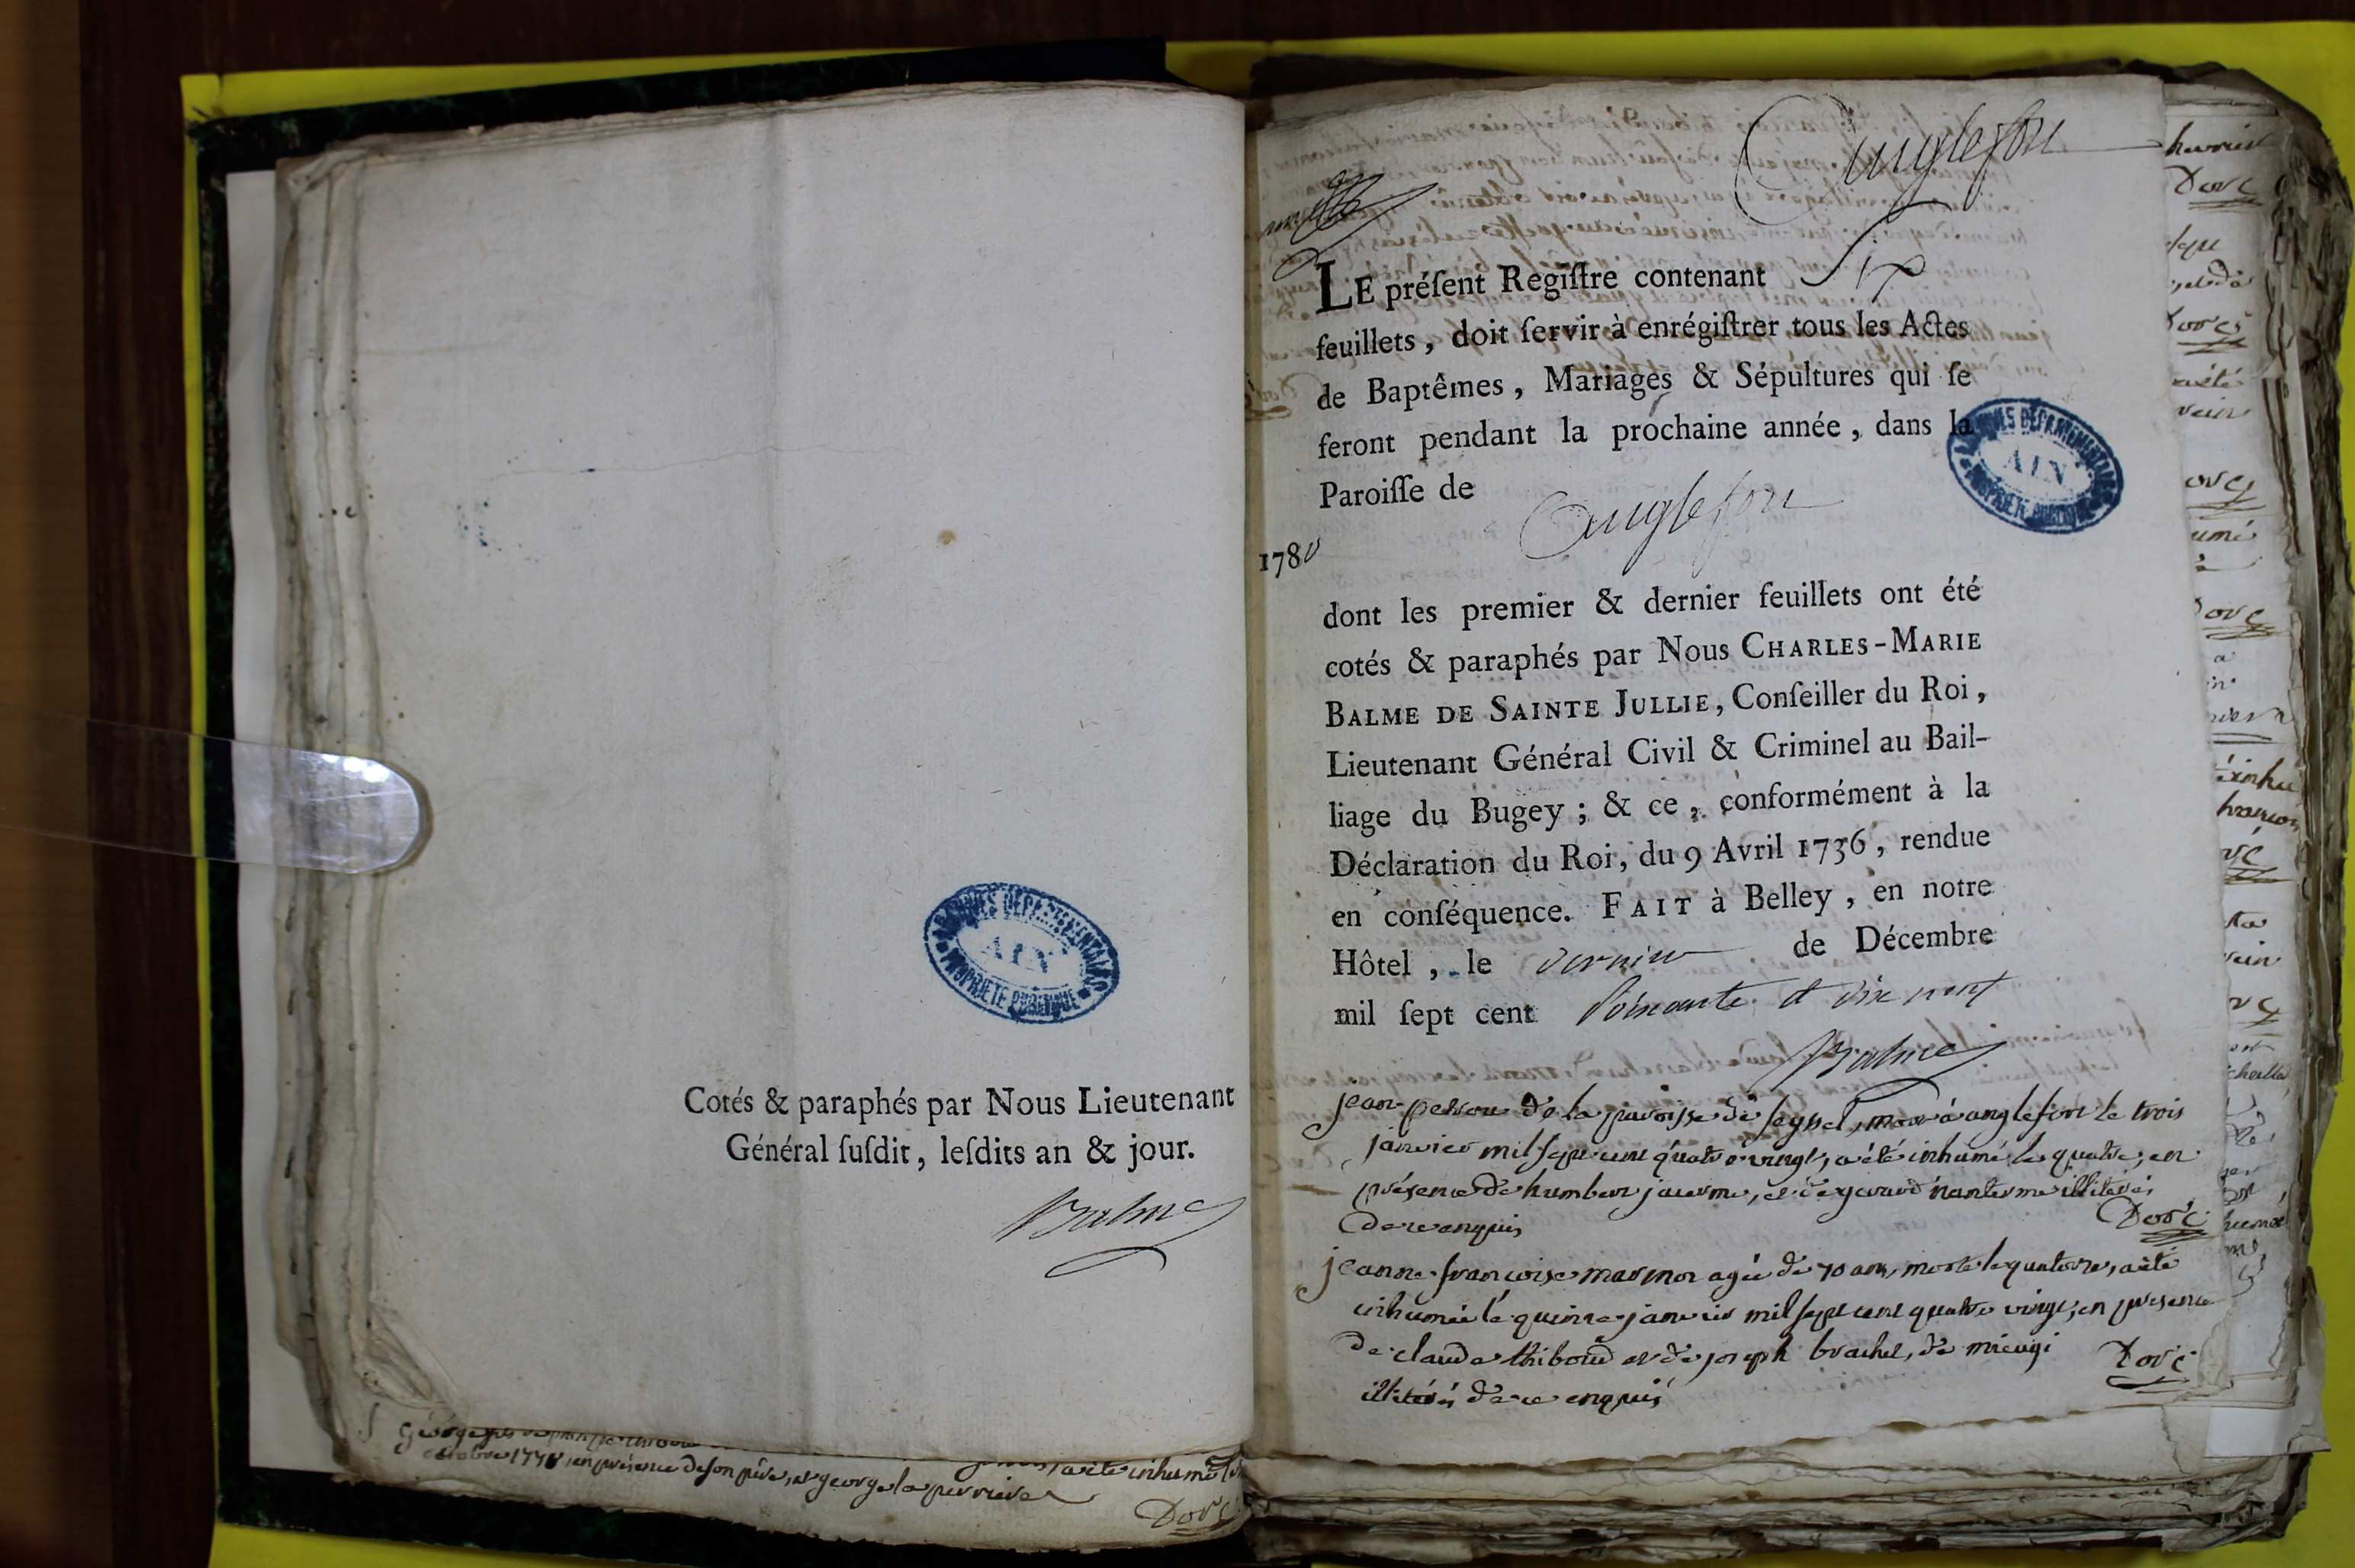 ARCHIVES DEPARTEMENTALES
AIN
PROPRIETE PUBLIQUE
Cotés & paraphés par Nous Lieutenant
Général ſuſdit, leſdits an & jour.
Balme
a été inhumé
octobre 1778, en présence de son père, et george la perriere
Dorc
Anglefort
LE préſent Regiſtre contenant Six
feuillets, doit ſervir à enrégiſtrer tous les Actes
de Baptêmes, Mariages & Sépultures qui ſe
feront pendant la prochaine année, dans la
Paroiſſe de
Anglefort
1780
ARCHIVES DEPARTEMENTALES
AIN
PROPRIETE PUBLIQUE
dont les premier & dernier feuillets ont été
cotés & paraphés par Nous CHARLES-MARIE
BALME DE SAINTE JULLIE, Conſeiller du Roi,
Lieutenant Général Civil & Criminel au Bail-
liage du Bugey; & ce, conformément à la
Déclaration du Roi, du 9 Avril 1736, rendue
en conſéquence. FAIT à Belley, en notre
Hôtel, le dernier de Décembre
mil ſept cent Soixante et dix neuf
Balme
jean de la paroisse de seyssel, mort à anglefort le trois
janvier mil sept cent quatre vingt, a été inhumé le quatre, en
présence de humbert et de illiterés
de ce enquis
Dorc
jeanne françoise marmon agée de 70 ans, morte le quatorze, a été
inhumée le quinze janvier mil sept cent quatre vingt, en presence
de claude thiboud et de joseph brachet, de mieugi
illiterés de ce enquis
Dorc